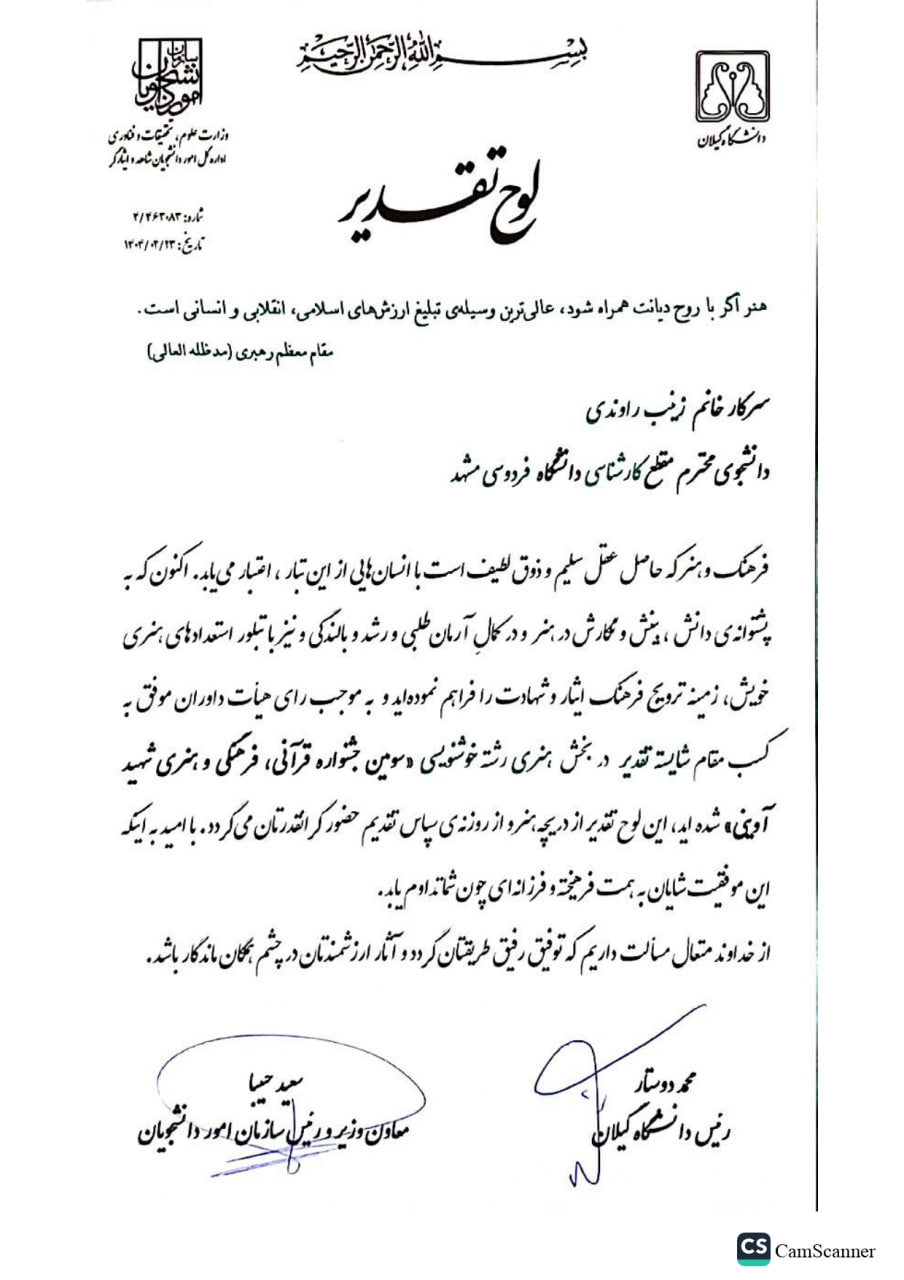 بسم الله الرحمن الرحیم
سازمان امور دانشجویان
وزارت علوم، تحقیقات و فناوری
اداره کل امور دانشجویان شاهد و ایثارگر
دانشگاه گیلان
لوح تقدیر
شماره: ۴/۴۶۳۰۸۳
تاریخ: ۱۴۰۴/۰۲/۲۳
هنر اگر با روح دیانت همراه شود، عالی‌ترین وسیله‌ی تبلیغ ارزش‌های اسلامی، انقلابی و انسانی است.
مقام معظم رهبری (مدظله العالی)
سرکار خانم زینب راوندی
دانشجوی محترم مقطع کارشناسی دانشگاه فردوسی مشهد
فرهنگ و هنر که حاصل عقل سلیم و ذوق لطیف است با انسان‌هایی از این تبار، اعتبار می‌یابد. اکنون که به
پشتوانه‌ی دانش، بینش و نگارش در هنر و در کمالِ آرمان طلبی و رشد و بالندگی و نیز با تبلور استعدادهای هنری
خویش، زمینه ترویج فرهنگ ایثار و شهادت را فراهم نموده‌اید و به موجب رای هیأت داوران موفق به
کسب مقام شایسته تقدیر در بخش هنری رشته خوشنویسی «سومین جشنواره قرآنی، فرهنگی و هنری شهید
آوینی» شده اید، این لوح تقدیر از دریچه هنر و از روزنه‌ی سپاس تقدیم حضور گرانقدرتان می‌گردد. با امید به اینکه
این موفقیت شایان به همت فرهیخته و فرزانه‌ای چون شما تداوم یابد.
از خداوند متعال مسألت داریم که توفیق رفیق طریقتان گردد و آثار ارزشمندتان در چشم همگان ماندگار باشد.
محمد دوستار
رئیس دانشگاه گیلان
سعید حبیبا
معاون وزیر و رئیس سازمان امور دانشجویان
CS CamScanner